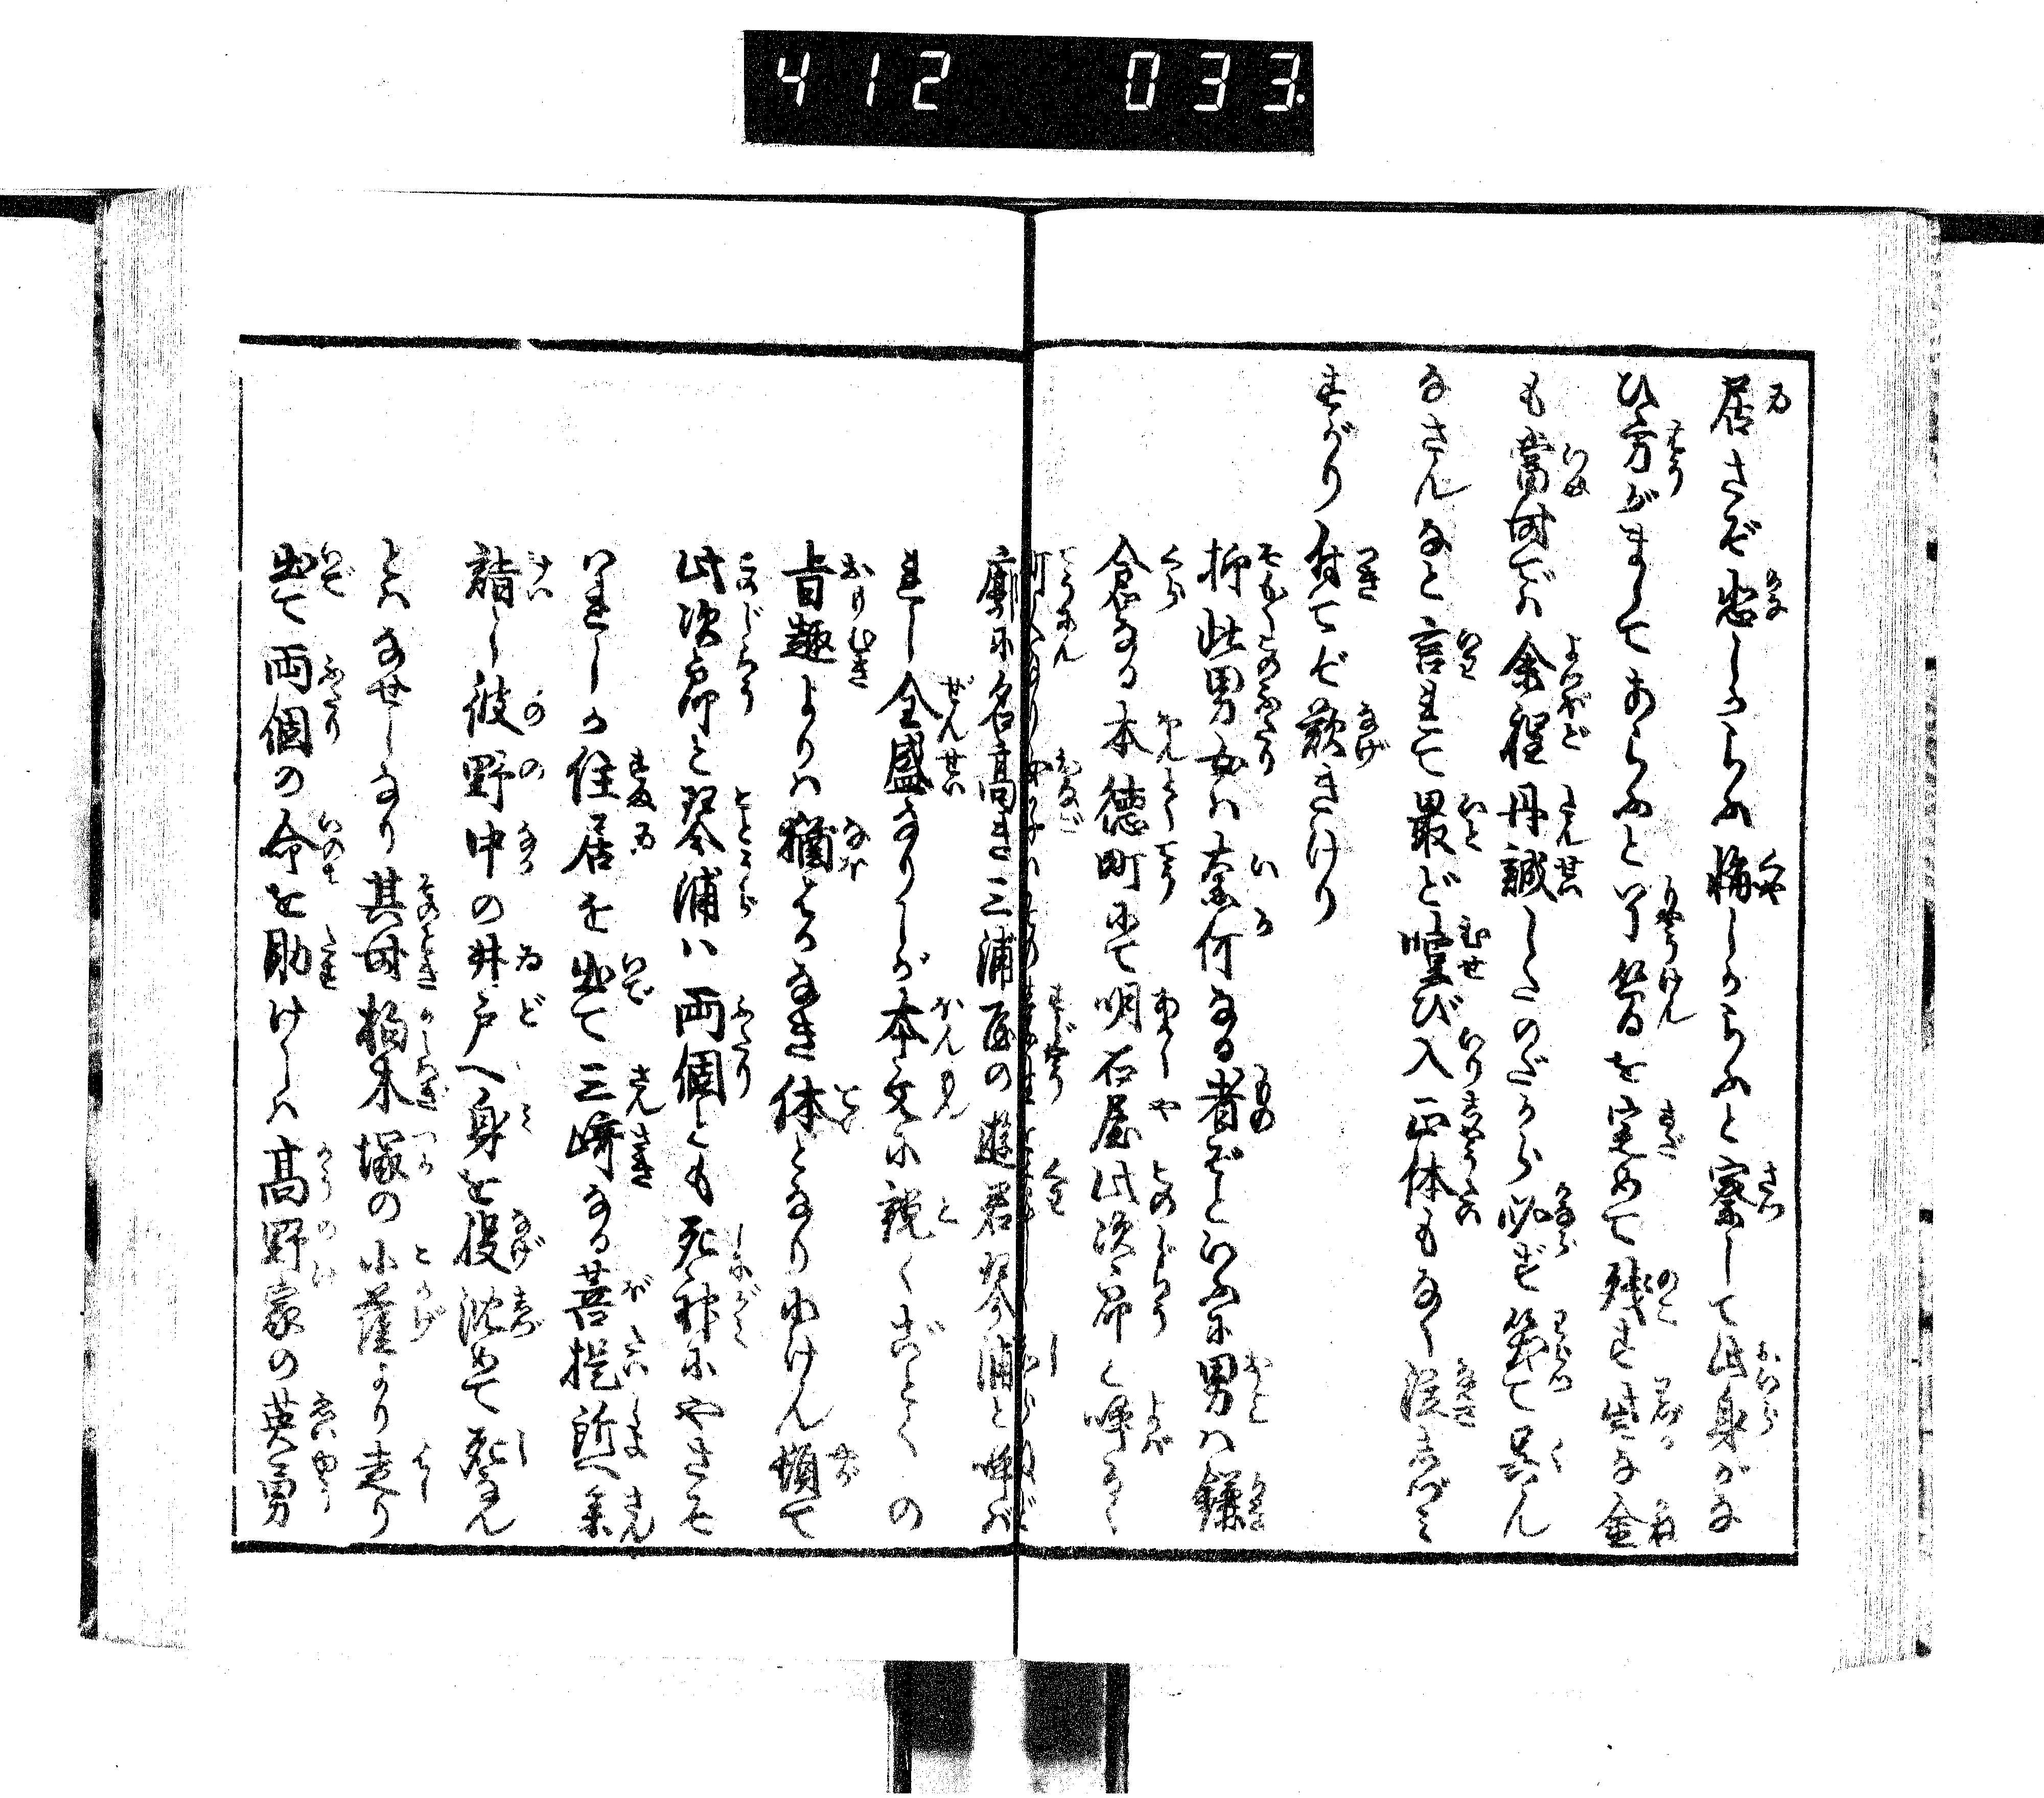 412 033.
居さぞ悲しからふ悔しからふと察して此身がな
ひ方がましであらふと了簡を定めて残す僅な金
も當時では余程丹誠したのだから必ず笑て呉ん
なさんなと言れて最ど噎び入正体もなく涙しづみ
すがり付てぞ歎きけり
抑此男女は奈何なる者ぞといふに男は鎌
倉なる本徳町にて明石屋此次郎と呼るゝ
廓に名高き三浦屋の遊君琴浦と呼ば
れし全盛なりしが本文に説くごとくの
旨趣よりは猶はかなき体となりゆけん頓て
此次郎と琴浦は両個とも死神にやさそ
はれしか住居を出て三崎なる菩提所へ参
詣し彼野中の井戸へ身を投沈めて死なん
とはなせしなり其母柏木塚の小蔭より走り
出て両個の命を助けしは高野家の英勇